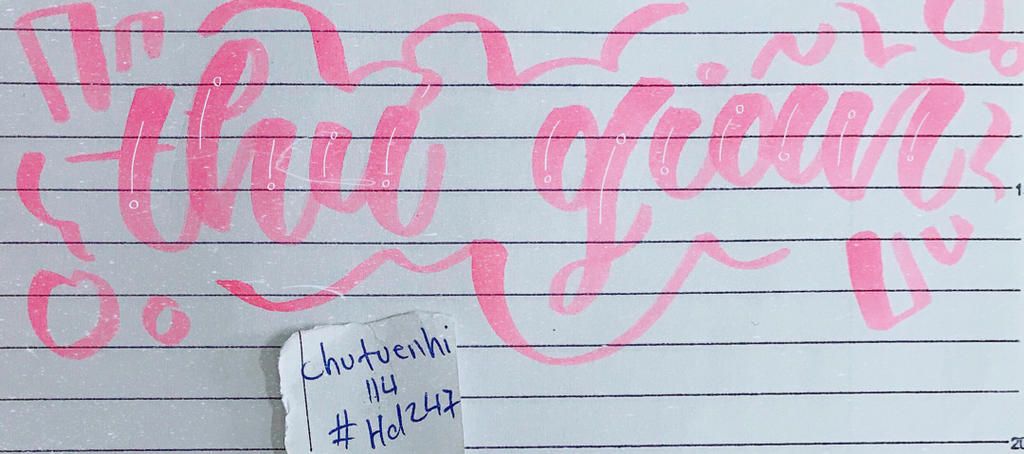 thư giãn
chutuenhi
114
#Hd247